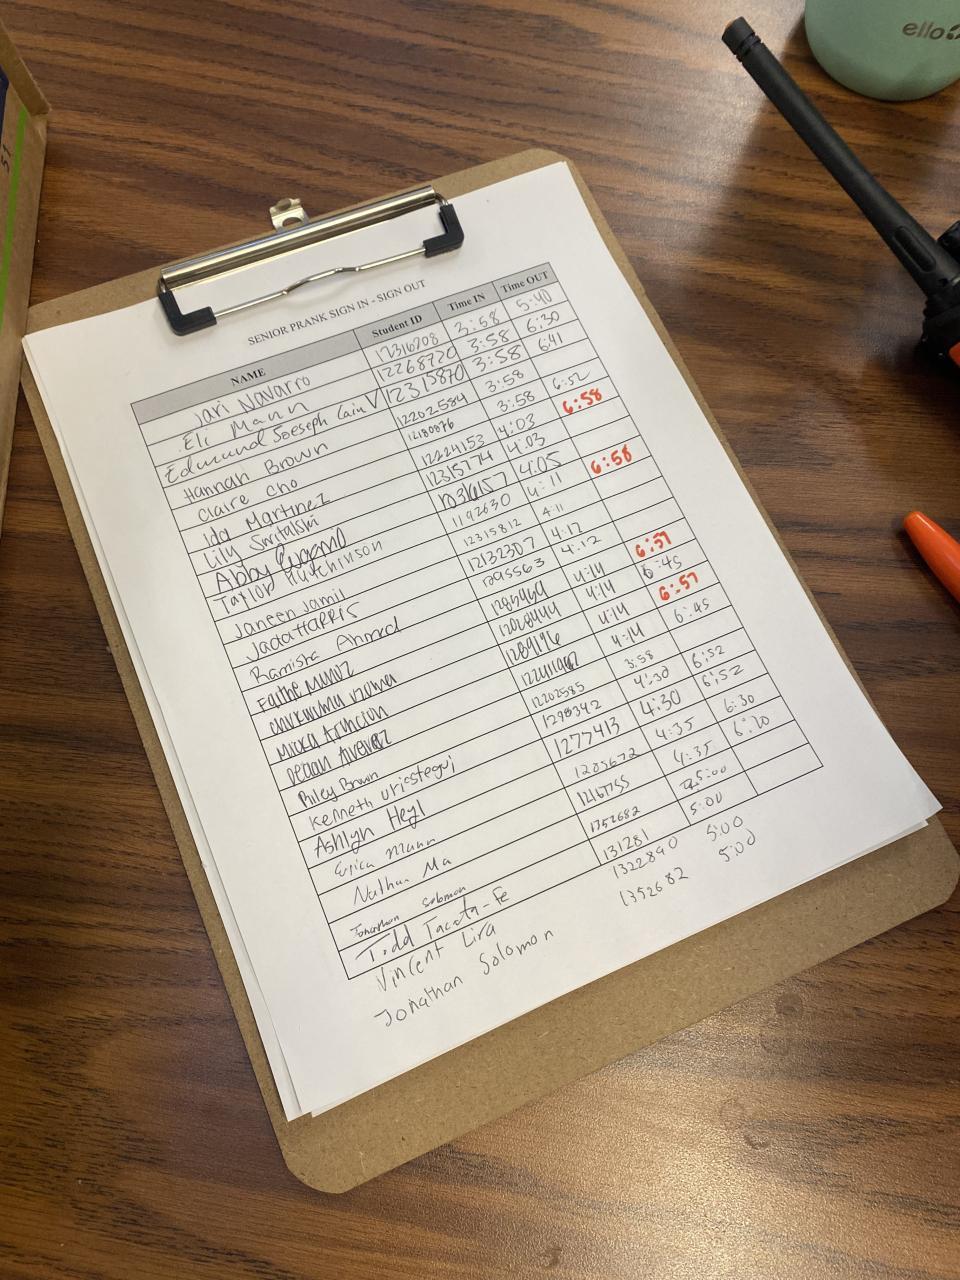 ello
SENIOR PRANK SIGN IN - SIGN OUT
NAME Student ID Time IN Time OUT
Jari Navarro 12316208 3:58 5:40
Eli Mann 12268720 3:58 6:30
Edmund Joeseph Cain V 12315870 3:58 6:41
Hannah Brown 12202584 3:58 6:52
Claire Cho 12180876 3:58 6:58
Ida Martinez 12224153 4:03
Lily 12315774 4:03 6:58
Abby 4:05
Taylor Hutchinson 1192630 4:11
Janeen Jamil 12315812 4:11 6:57
Jada Harris 12132307 4:12 6:45
Ramisha Ahmed 1295563 4:12 6:57
4:14 6:45
4:14
1289196 4:14
4:14 6:52
Riley Brown 12202585 3:58 6:52
Kenneth Uriostegui 1298342 4:30
Ashlyn Heyl 1277413 4:30 6:30
Erica Mann 1283672 4:35 6:20
Nathan Ma 12167755 4:35
Jonathan Solomon 1352682 5:00
Todd Tacata-Fe 131281 5:00
Vincent Lira 1322890 5:00
Jonathan Solomon 1352682 5:00